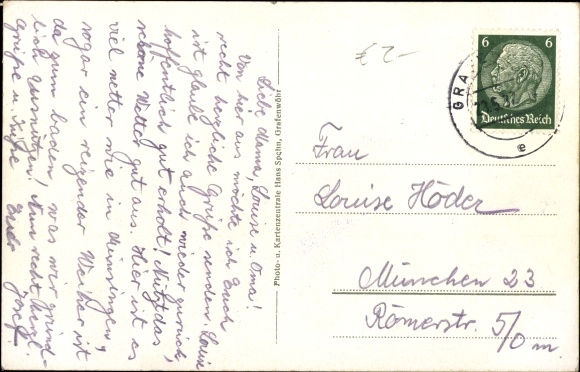 Liebe Mama, Louise u. Oma!
Von hier aus möchte ich Euch
recht herzliche Grüße senden. Louise
ist glaube ich auch wieder zurück,
hoffentlich gut erholt! Nützt das
schöne Wetter gut aus. Hier ist es
viel netter wie in Münsingen,
sogar ein reizender Weiher ist
da zum baden, was wir gründ-
lich ausnützen! Nun recht herzl.
Grüße u. Küsse Euer
Josef.
Photo- u. Kartenzentrale Hans Spohn, Grafenwöhr
€ 2-
GRA
e
6 6
Deutsches Reich
Frau
Louise Höder
München 23
Römerstr. 5/0 m